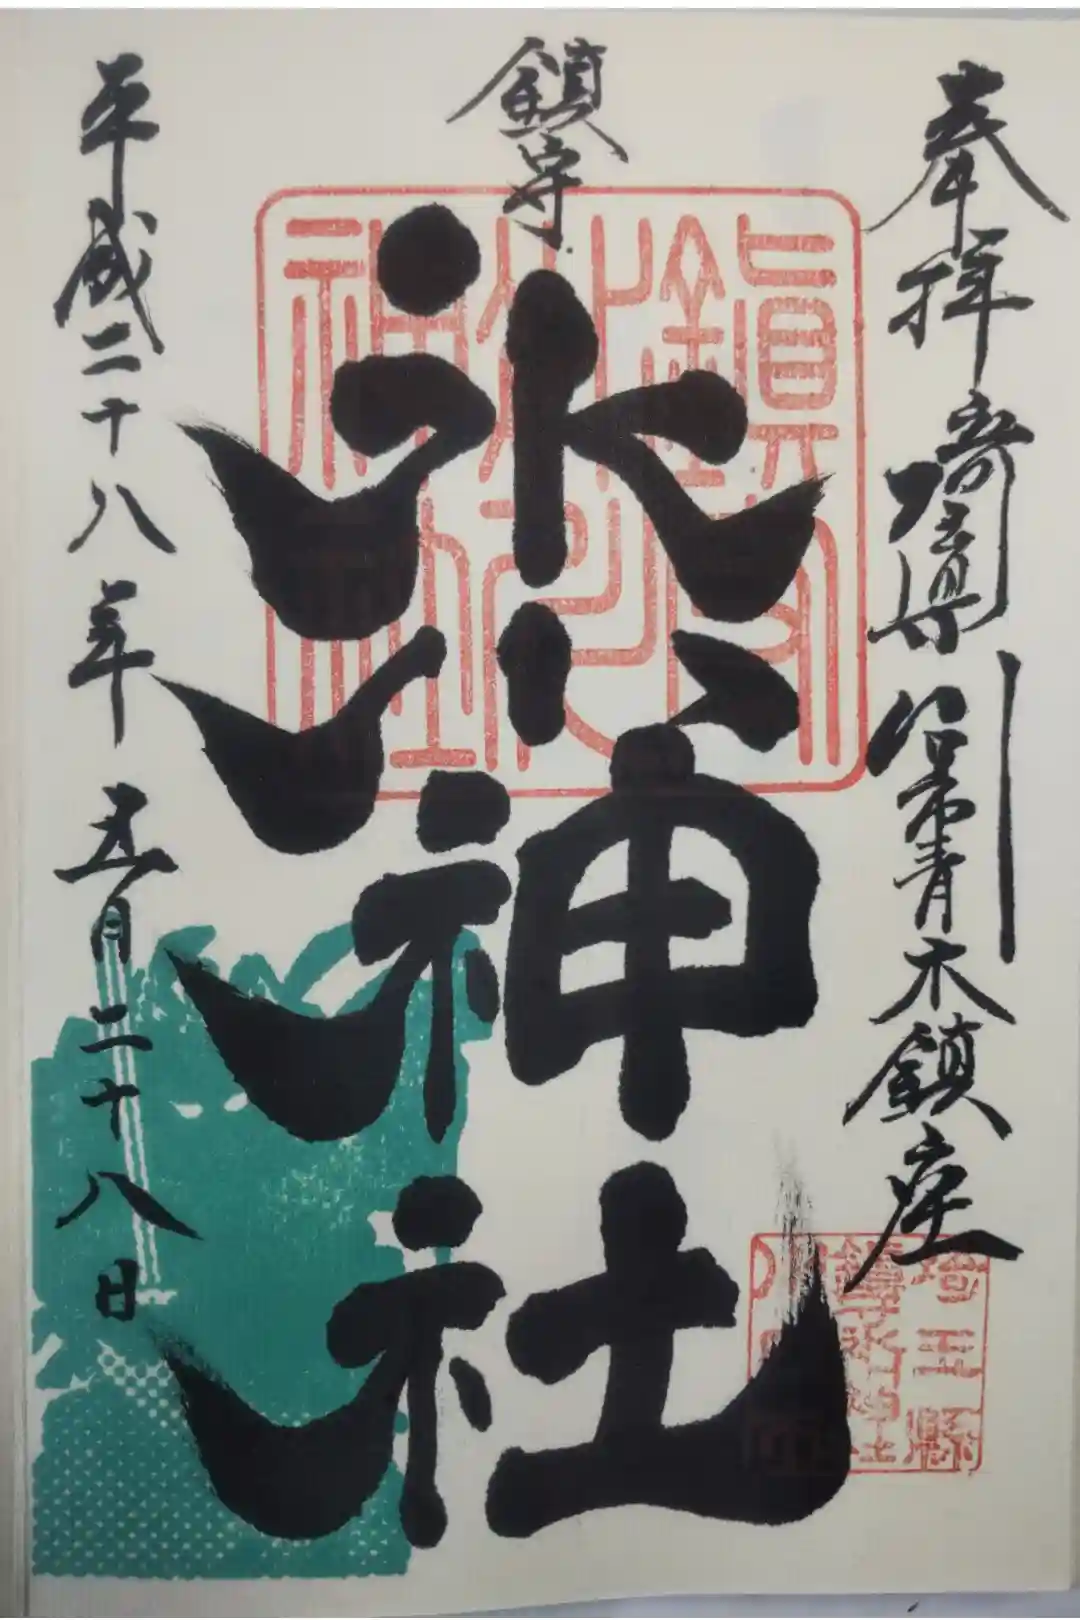 奉拝 埼玉県川口市青木鎮座
鎮守
氷川神社
平成二十八年五月二十八日
鎮守
神社
埼玉縣
鎮守氷川神社